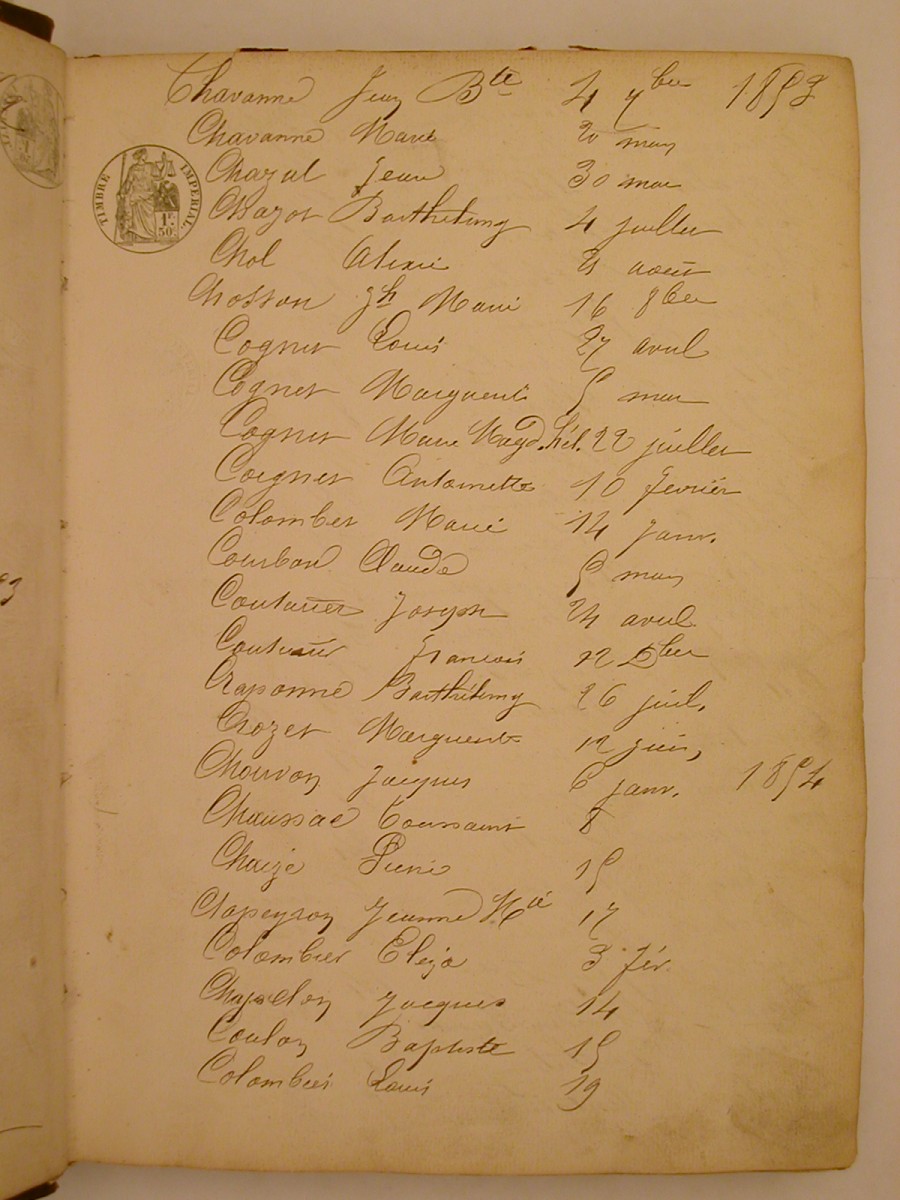 Chavanne Jean Bte 4 7bre 1853
Chavanne Marie 20 mars
TIMBRE IMPERIAL
1F. 50c.
Chazal Jean 30 mai
Chazot Barthélemy 4 juillet
Chol Alexis 21 août
Chosson Jh Marie 16 8bre
Cognet Louis 27 avril
Cognet Marguerite 5 mai
Cognet Marie Magd. hél. 22 juillet
Coignet Antoinette 10 février
Colombet Marie 14 janv.
Courbon Claude 5 mars
Couturier Joseph 24 avril
Couturier François 12 Dbre
Craponne Barthélemy 26 juil.
Crozet Marguerite 12 juin,
Chouvon Jacques 6 janv. 1854
Chaussac Toussaint 8
Chaize Pierre 15
Chapeyron Jeanne Mie 17
Colombier Eléza 3 fév.
Chapelon Jacques 14
Coulon Baptiste 15
Colombier Louis 19